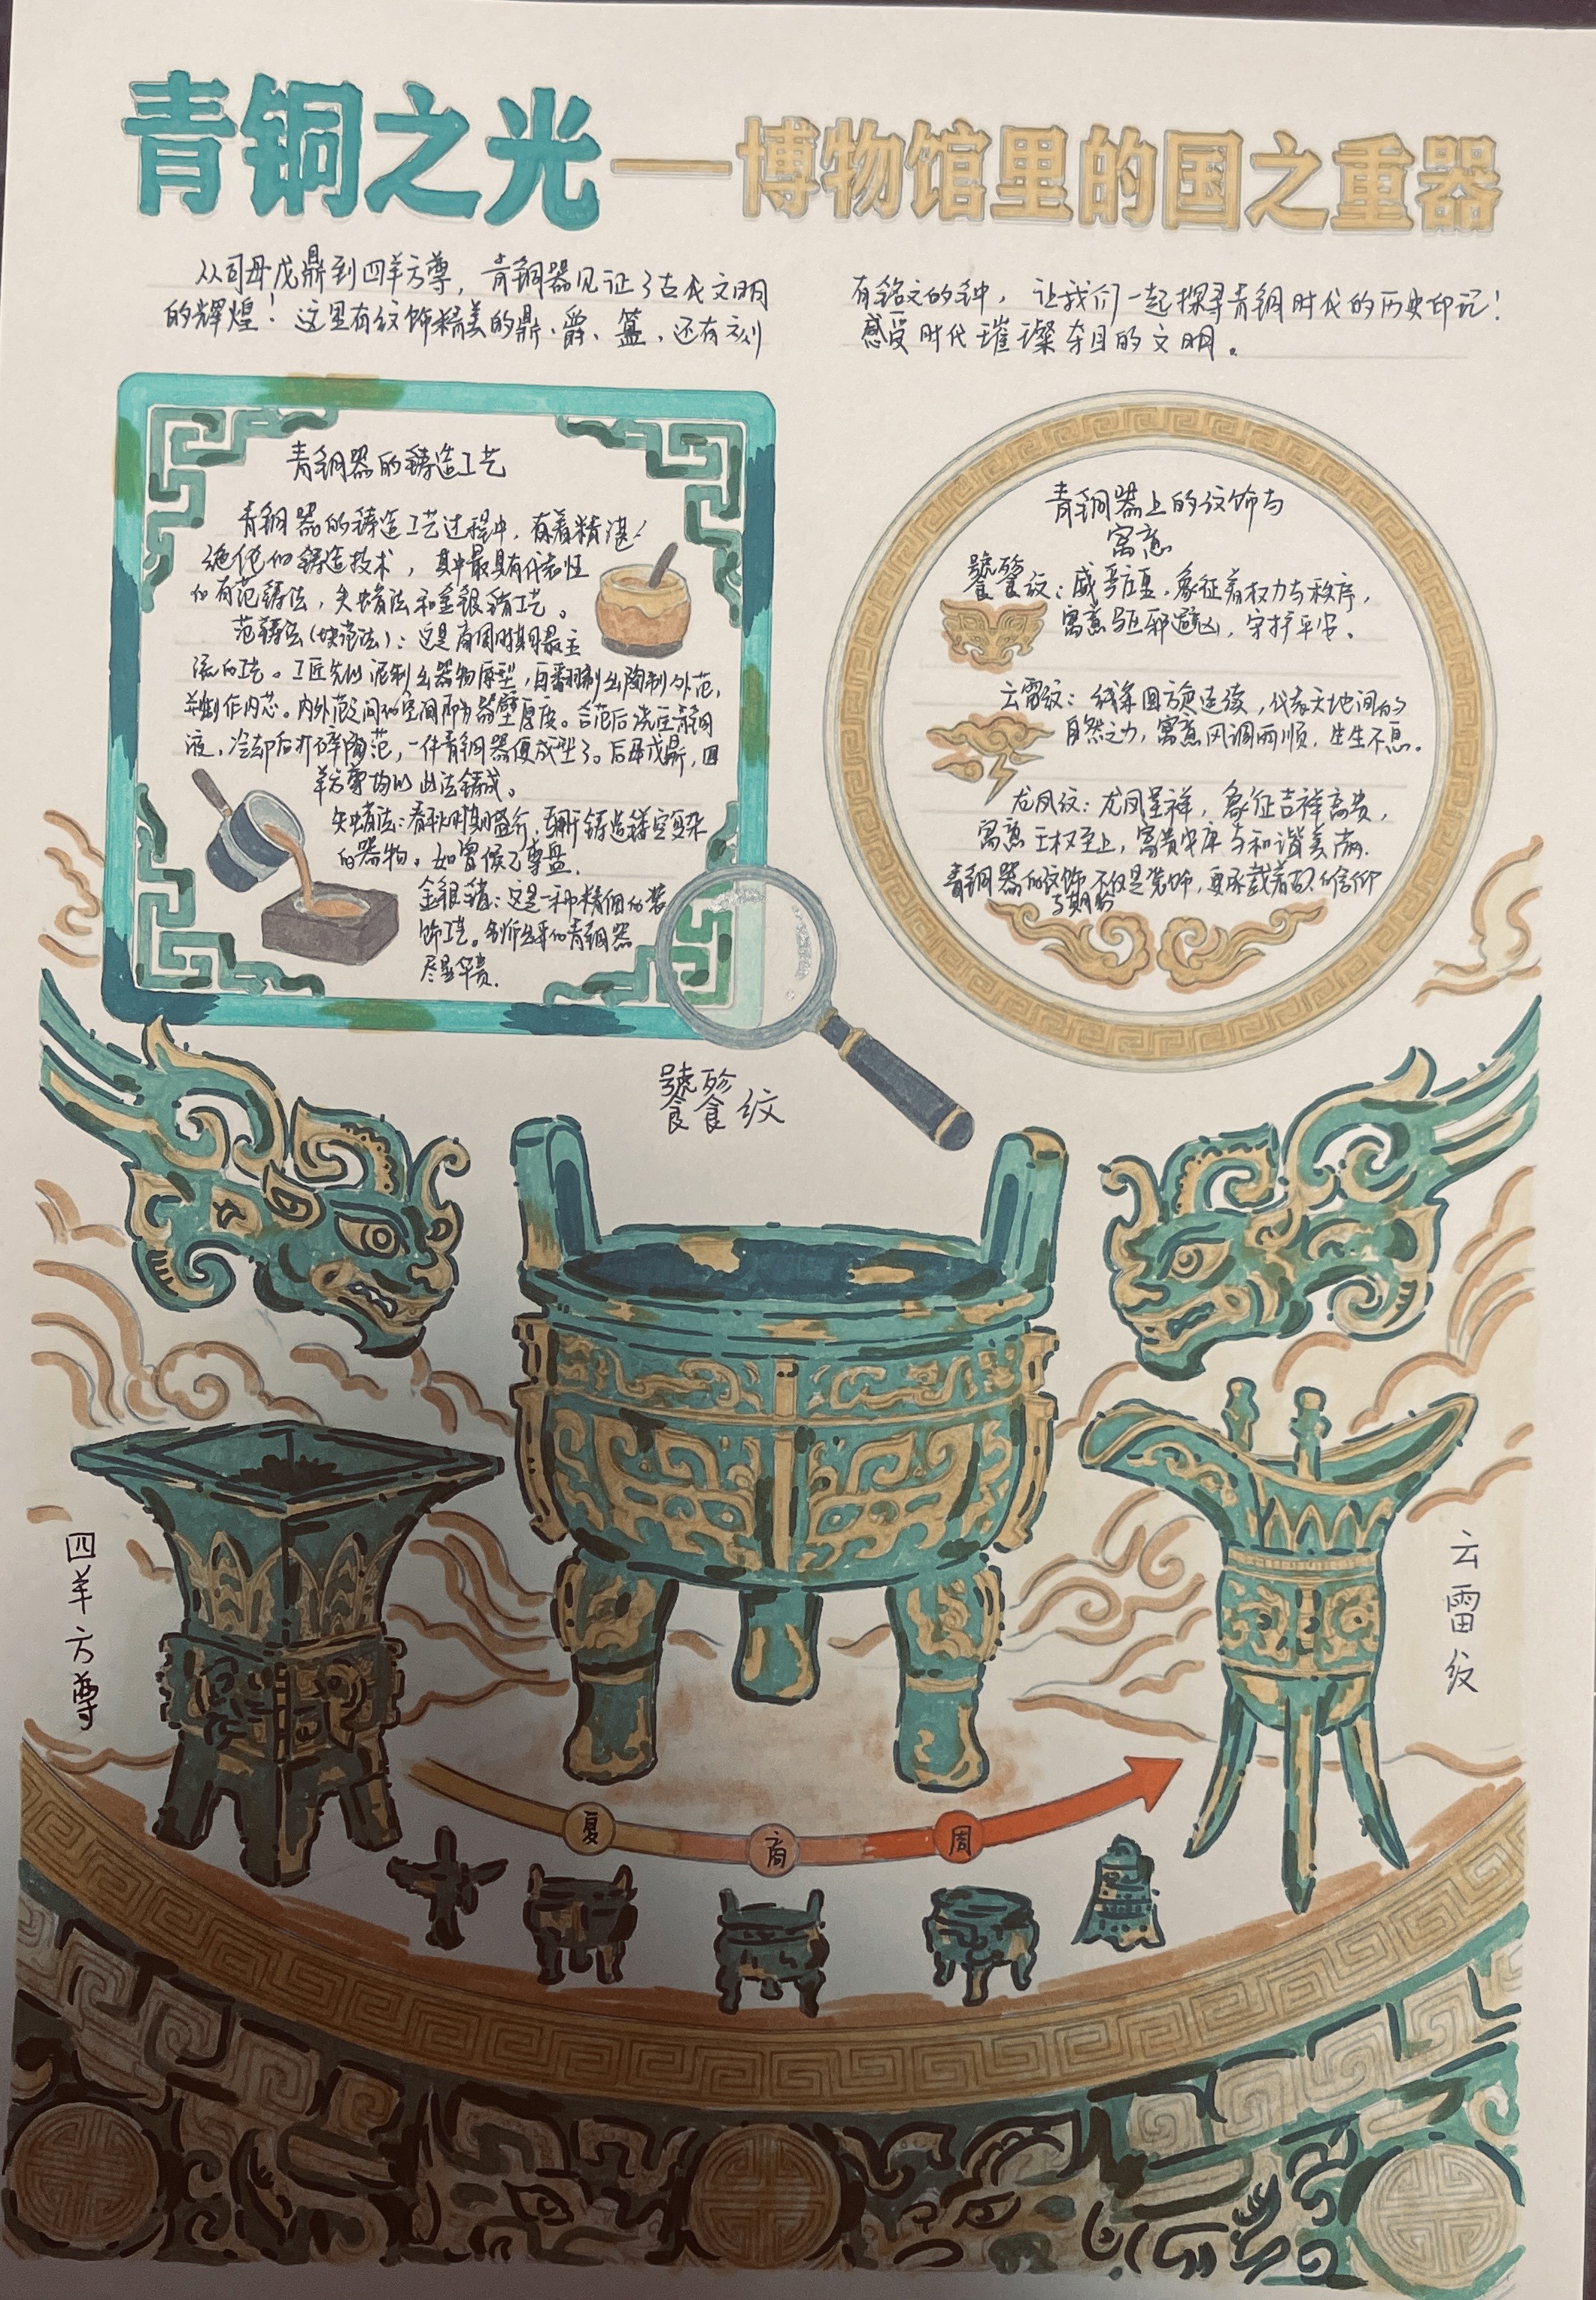 青铜之光——博物馆里的国之重器
从司母戊鼎到四羊方尊，青铜器见证了古代文明
的辉煌！这里有纹饰精美的鼎、爵、簋，还有刻
有铭文的钟，让我们一起探寻青铜时代的历史印记！
感受时代璀璨夺目的文明。
青铜器的铸造工艺
青铜器的铸造工艺过程中，有着精湛
绝伦的铸造技术，其中最具有代表性
的有范铸法，失蜡法和金银错工艺。
范铸法（块范法）：这是商周时期最主
流的工艺。工匠先以泥制出器物原型，再翻制出陶制外范，
并制作内芯。内外范之间的空间即为器壁厚度。合范后浇注青铜
液，冷却后打碎陶范，一件青铜器便成型了。后母戊鼎，四
羊方尊均以此法铸成。
失蜡法：春秋时期盛行，用于铸造镂空复杂
的器物。如曾侯乙尊盘。
金银错：这是一种精细的装
饰工艺。制作出来的青铜器
尽显华贵。
青铜器上的纹饰与
寓意
饕餮纹：威严庄重，象征着权力与秩序，
寓意驱邪避凶，守护平安。
云雷纹：线条回旋连续，代表天地间的
自然之力，寓意风调雨顺，生生不息。
龙凤纹：龙凤呈祥，象征吉祥高贵，
寓意王权至上，富贵安康与和谐美满。
青铜器的纹饰不仅是装饰，更承载着古人信仰
与期盼
饕餮纹
四羊方尊
云雷纹
夏
商
周